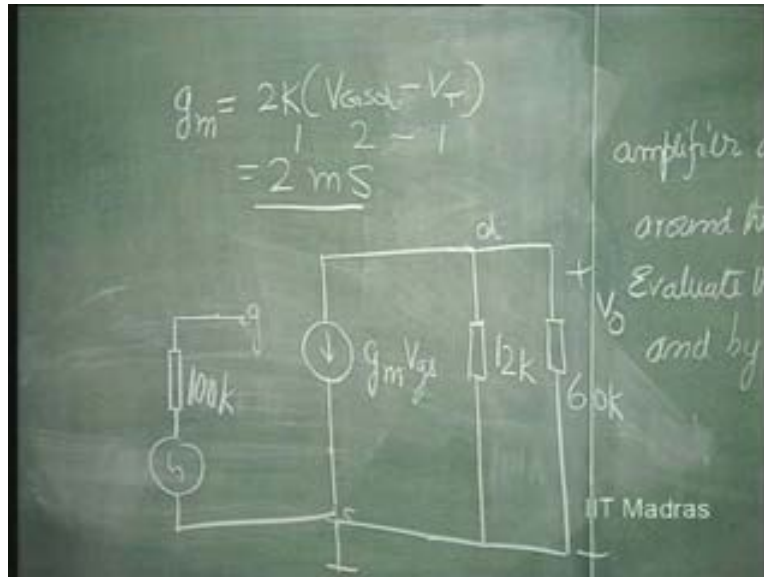 gm = 2K(VGSQ - VT)
1 2 - 1
= 2 mS
amplifier
around
Evaluate
and by
d
+
g
gm Vgs
12k
60k
Vo
100k
s
-
IIT Madras